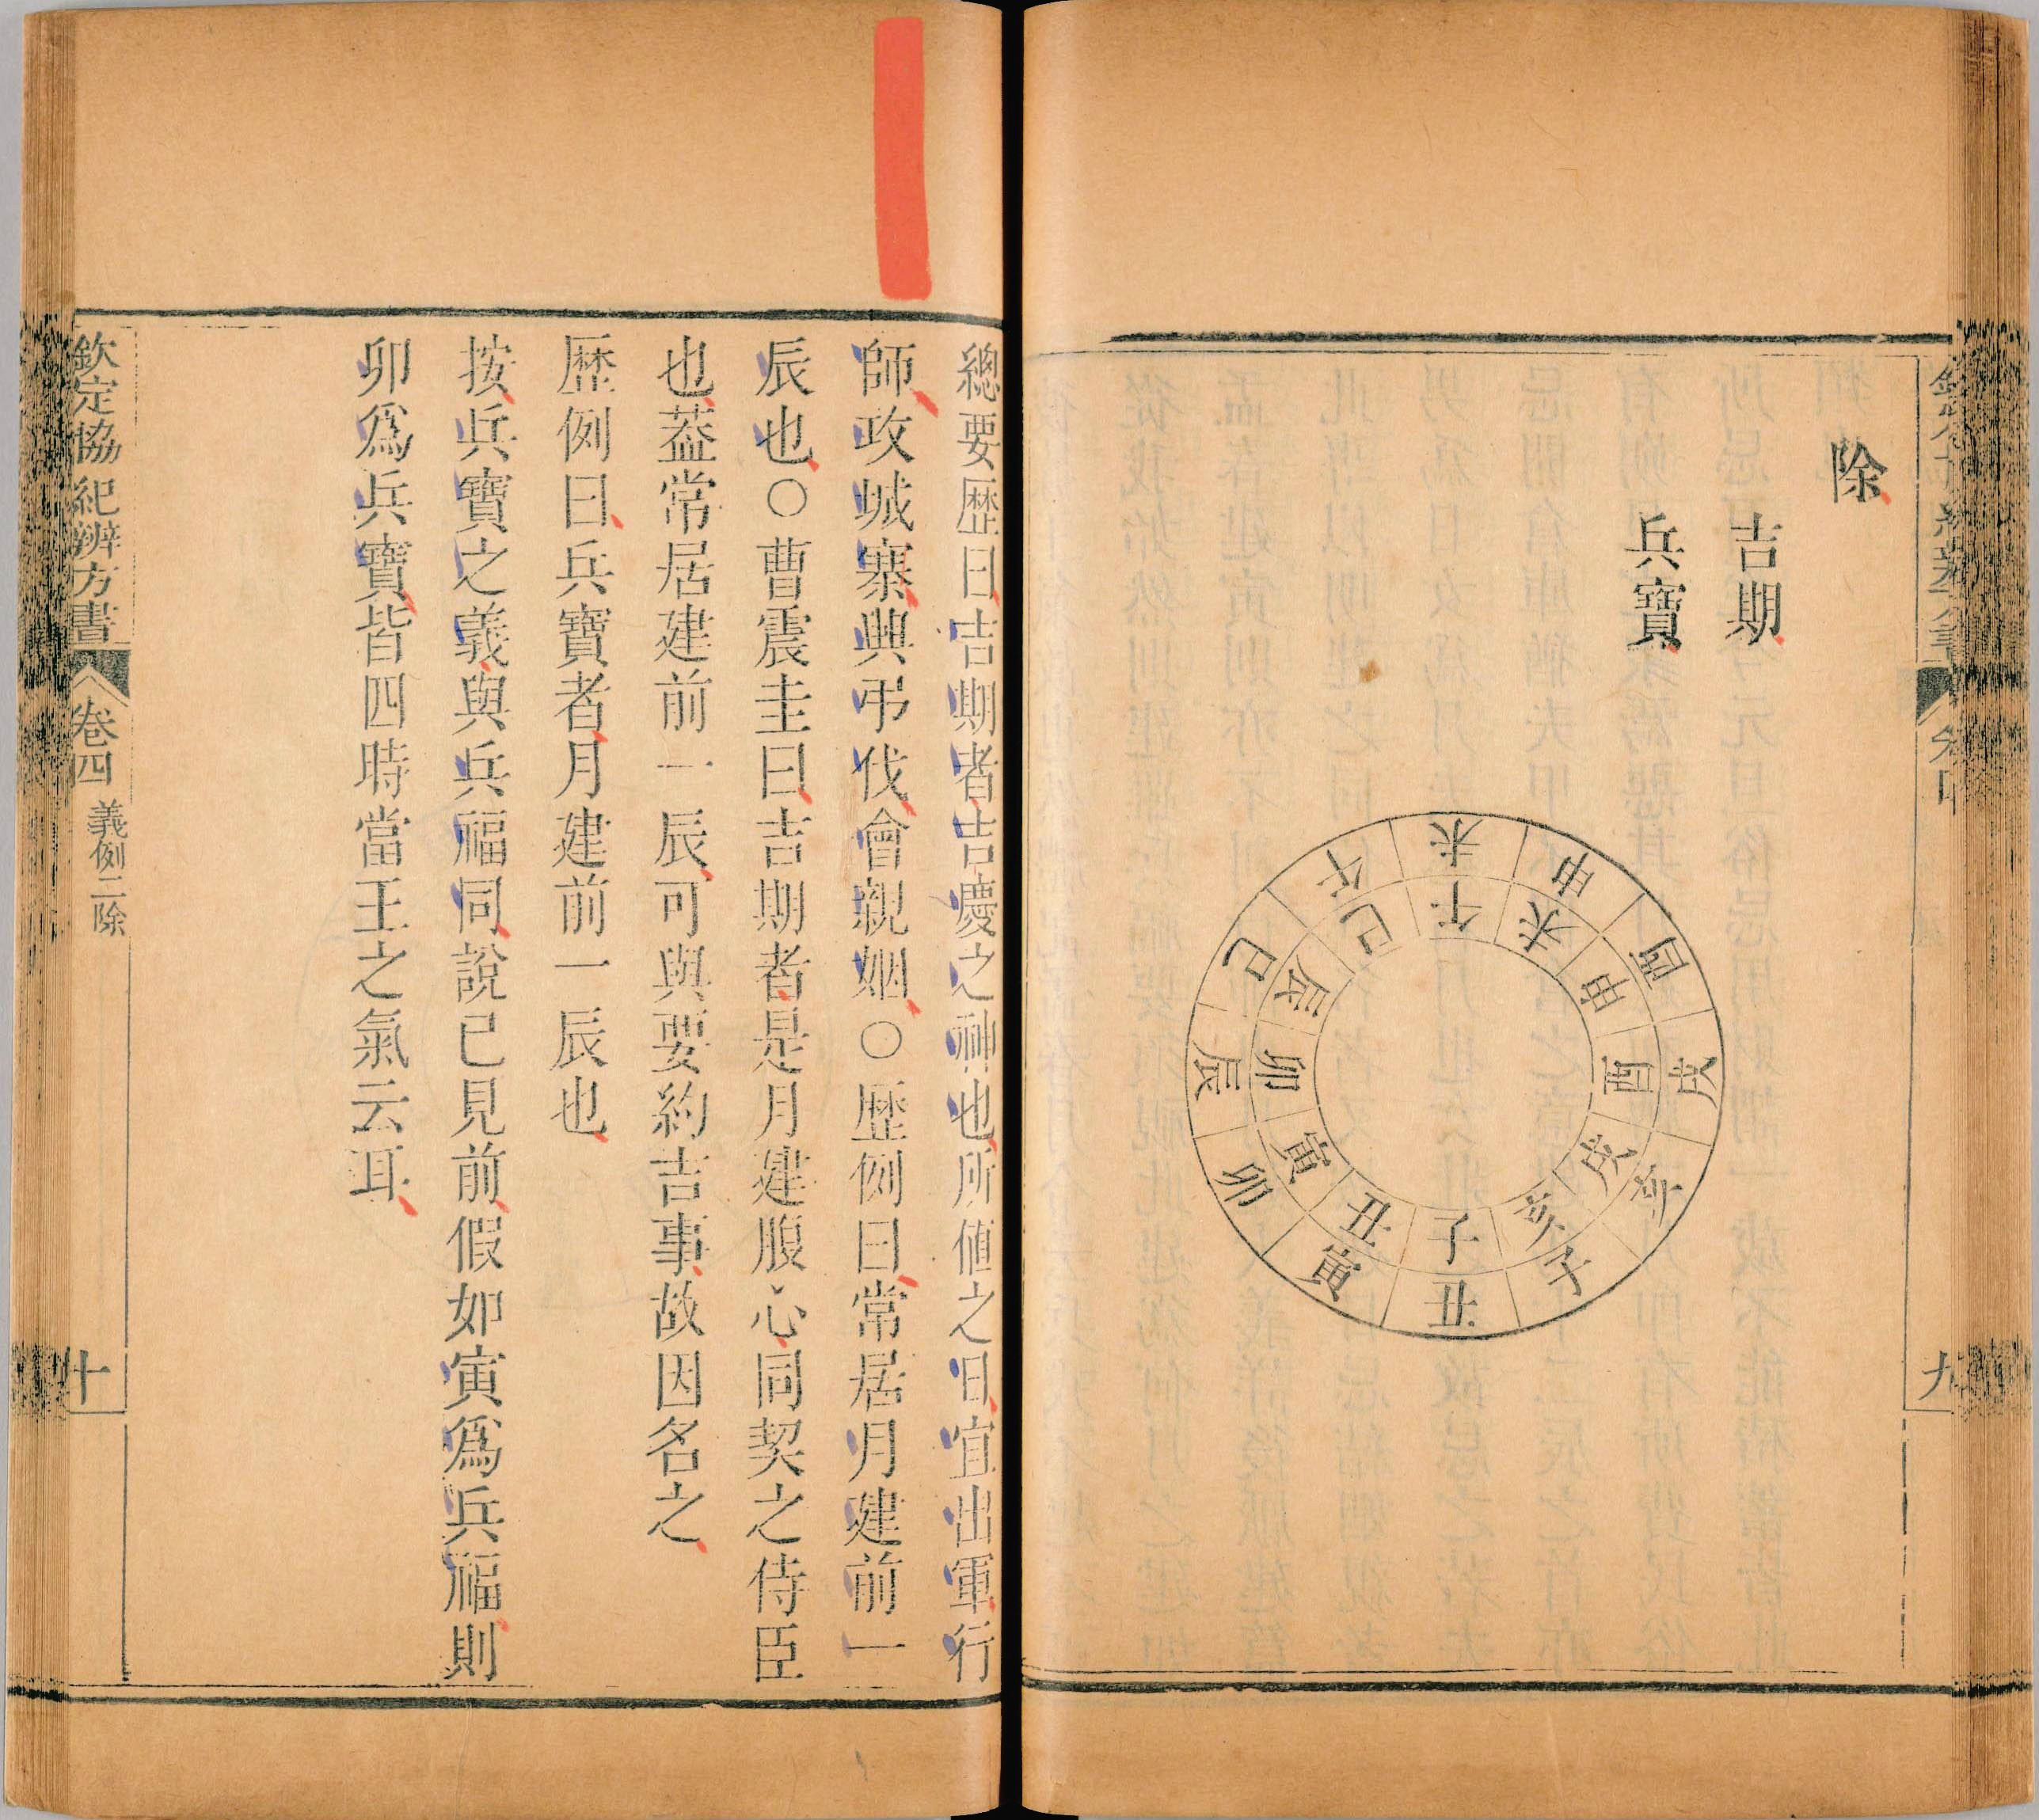 除
吉期
兵寶
未
申
酉
戌
亥
子
丑
寅
卯
辰
巳
午
午
未
申
酉
戌
亥
子
丑
寅
卯
辰
巳
九
總要歷曰吉期者吉慶之神也所值之日宜出軍行
師政城寨興弔伐會親姻○歷例曰常居月建前一
辰也○曹震圭曰吉期者是月建腹心同契之侍臣
也葢常居建前一辰可與要約吉事故因名之
歷例曰兵寶者月建前一辰也
按兵寶之義與兵福同說已見前假如寅爲兵福則
卯爲兵寶皆四時當王之氣云耳
欽定協紀辨方書
卷四
義例二除
十